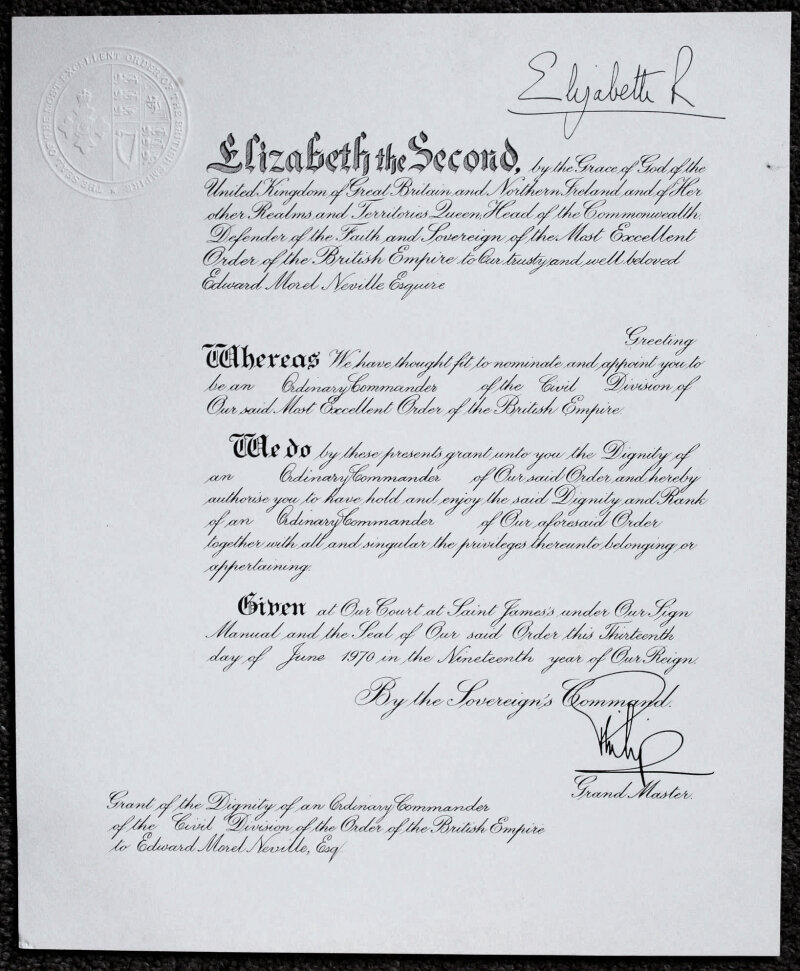 THE SEAL OF THE MOST EXCELLENT ORDER OF THE BRITISH EMPIRE
Elizabeth R
Elizabeth the Second, by the Grace of God, of the
United Kingdom of Great Britain and Northern Ireland and of Her
other Realms and Territories Queen, Head of the Commonwealth,
Defender of the Faith and Sovereign of the Most Excellent
Order of the British Empire to Our trusty and well beloved
Edward Morel Neville Esquire
Greeting
Whereas We have thought fit to nominate and appoint you to
be an Ordinary Commander of the Civil Division of
Our said Most Excellent Order of the British Empire
We do by these presents grant unto you the Dignity of
an Ordinary Commander of Our said Order and hereby
authorise you to have hold and enjoy the said Dignity and Rank
of an Ordinary Commander of Our aforesaid Order
together with all and singular the privileges thereunto belonging or
appertaining.
Given at Our Court at Saint James's under Our Sign
Manual and the Seal of Our said Order this Thirteenth
day of June 1970 in the Nineteenth year of Our Reign.
By the Sovereign's Command.
Philip
Grand Master.
Grant of the Dignity of an Ordinary Commander
of the Civil Division of the Order of the British Empire
to Edward Morel Neville, Esq